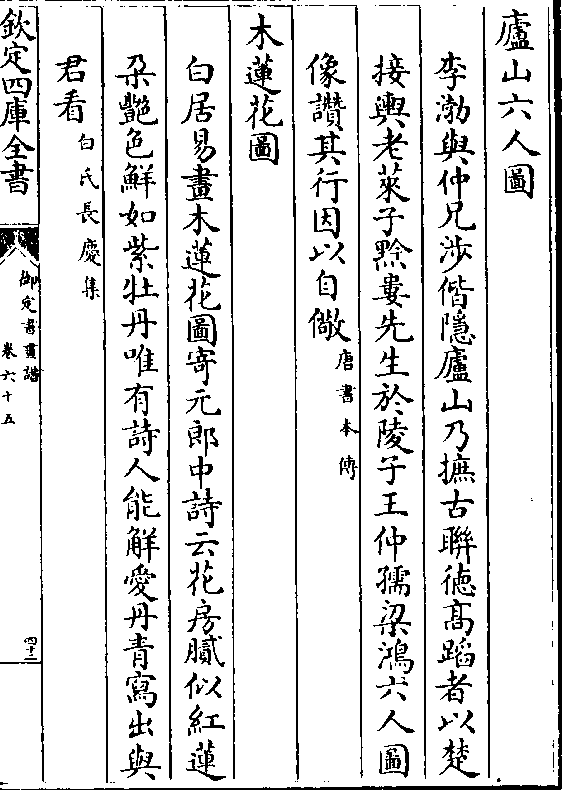 廬山六人圖
李渤與仲兄涉偕隱廬山乃摭古聯徳髙蹈者以楚
接輿老萊子黔婁先生於陵子王仲孺梁鴻六人圖
像讚其行因以自儆唐書本傳
木蓮花圖
白居易畫木蓮花圖寄元郎中詩云花房膩似紅蓮
朶艷色鮮如紫牡丹唯有詩人能解愛丹青寫出與
君看白氏長慶集
欽定四庫全書
御定書畫譜
卷六十五
四十二